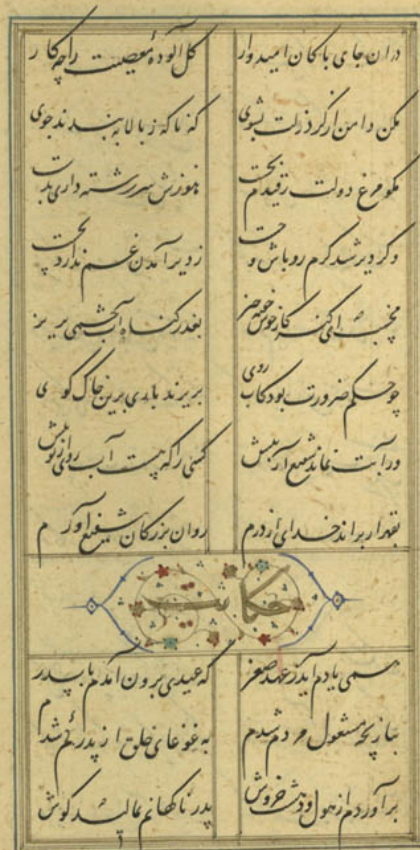 در ان جای باکان امیدوار کل آلودهٔ معصیت را چه کار
مکن دامن از کرد زلت بشوی که ناکه ز بالا ببندند جوی
مکو مرغ دولت ز قیدم بجست هنوزش سر رشته داری بدست
و کر دیر شد کرم رو باش و جست ز دیر آمدن غم ندارد بحت
مخسب ای کنه کار خوش خفته خیز بعذر کناه آب چشمی بریز
چو حکم ضرورت بود کاب روی بریزند باری برین خاک کوی
ور آبت نماند شفیع آر بیش کسی را که هست آب روی از تو بیش
بقهر ار براند خدای از درم روان بزرکان شفیع آورم
حکایت
همی یادم آید ز عهد صغر که عیدی برون آمدم با پدر
ببازیچه مشغول مردم شدم به غوغای خلق از پدر کم شدم
برآوردم از هول و دهشت خروش پدر ناکهانم بمالید کوش